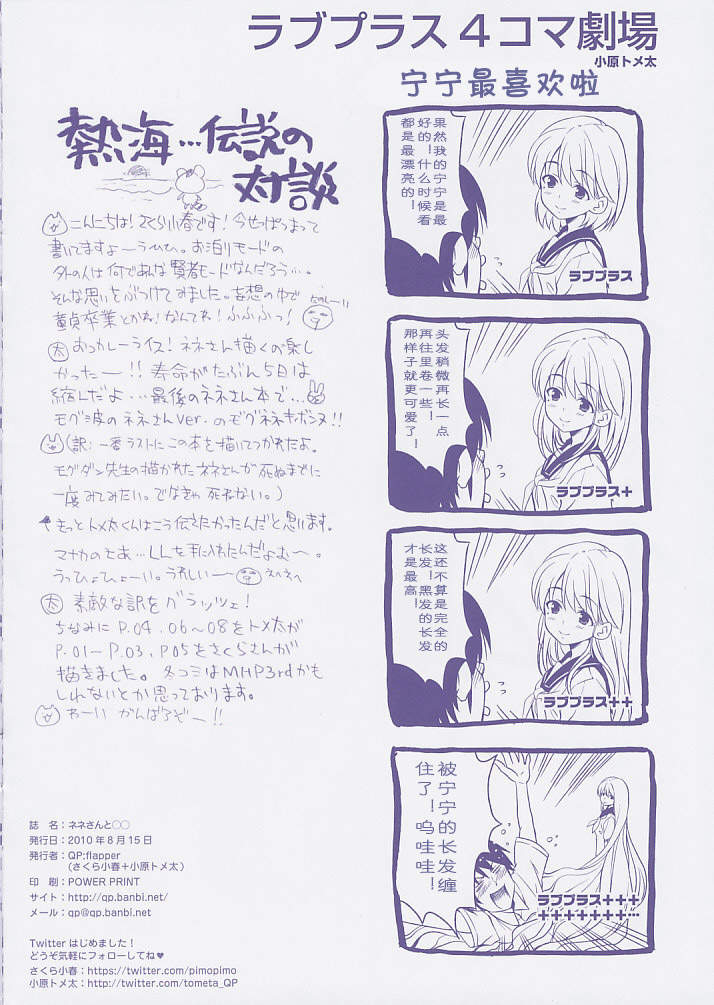 ラブプラス4コマ劇場
小原トメ太
宁宁最喜欢啦
果然我的宁宁是最
好的!什么时候看
都是最漂亮的!
ラブプラス
头发稍微再长一点
再往里卷一些!
那样子就更可爱了!
ラブプラス+
这还不算是完全的
长发!黑发的长发
才是最高!
ラブプラス++
被宁宁的长发缠
住了!呜哇哇!
ラブプラス+++
+++++++…
熱海…伝説の
対談
こんにちは!さくら小春です!今せっぱつまって
書いてますよーうひひ。お泊りモードの
外の人は何であんな賢者モードなんだろう…。
そんな思いをぶつけてみました。妄想の中で
童貞卒業とかね!なんてね!ふふふっ!
たのしーい
太 おっカレーライス!ネネさん描くの楽し
かったー!!寿命がたぶん5日は
縮んだよ…最後のネネさん本で…
モグ波のネネさんver.のモグネネキボンヌ!!
(訳:一番ラストにこの本を描いてつかれたよ。
モグダン先生の描かれたネネさんが死ぬまでに
一度みてみたい。でなきゃ死ねない。)
きっとトメ太くんはこう伝えたかったんだと思います。
マナカのとあ…LLを手に入れたんだよむ〜。
うっひょひょーい。うれしいー
太 素敵な訳をグラッツェ!
ちなみにP.04.06〜08をトメ太が
P.01ーP.03,P05をさくらさんが
描きました。冬コミはMHP3rdかも
しれないとか思っております。
わーい がんばるぞー!!
誌 名:ネネさんと○○
発行日:2010年8月15日
発行者:QP:flapper
(さくら小春+小原トメ太)
印 刷:POWER PRINT
サイト:http://qp.banbi.net/
メール:qp@qp.banbi.net
Twitter はじめました!
どうぞ気軽にフォローしてね♥
さくら小春:https://twitter.com/pimopimo
小原トメ太:https://twitter.com/tometa_QP